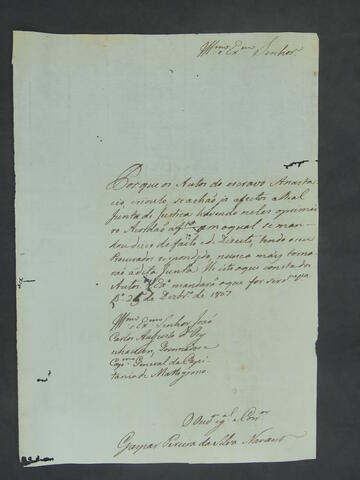 Illmo e Exmo Senhor
Porque os Autos do escravo Anasta-
cio, crioulo, se achão já afectos a Real
Junta de Justiça havendo nelles o primei-
ro Acordão a f em a qual se man-
dou dizer de facto e de Direito, tendo o seu
Procurador respondido, nunca mais torna-
rão a dita Junta. He isto o que consta dos
Autos VExa mandará o que for servido
26 de Dezbro de 1807
Illmo e Exmo Senhor João
Carlos Augusto d'Oy
nhausen, Governador e
Capm General da Capi-
tania de Mattogrosso.
O Ouvor gal e Corror
Gaspar Pereira da Silva Navarro